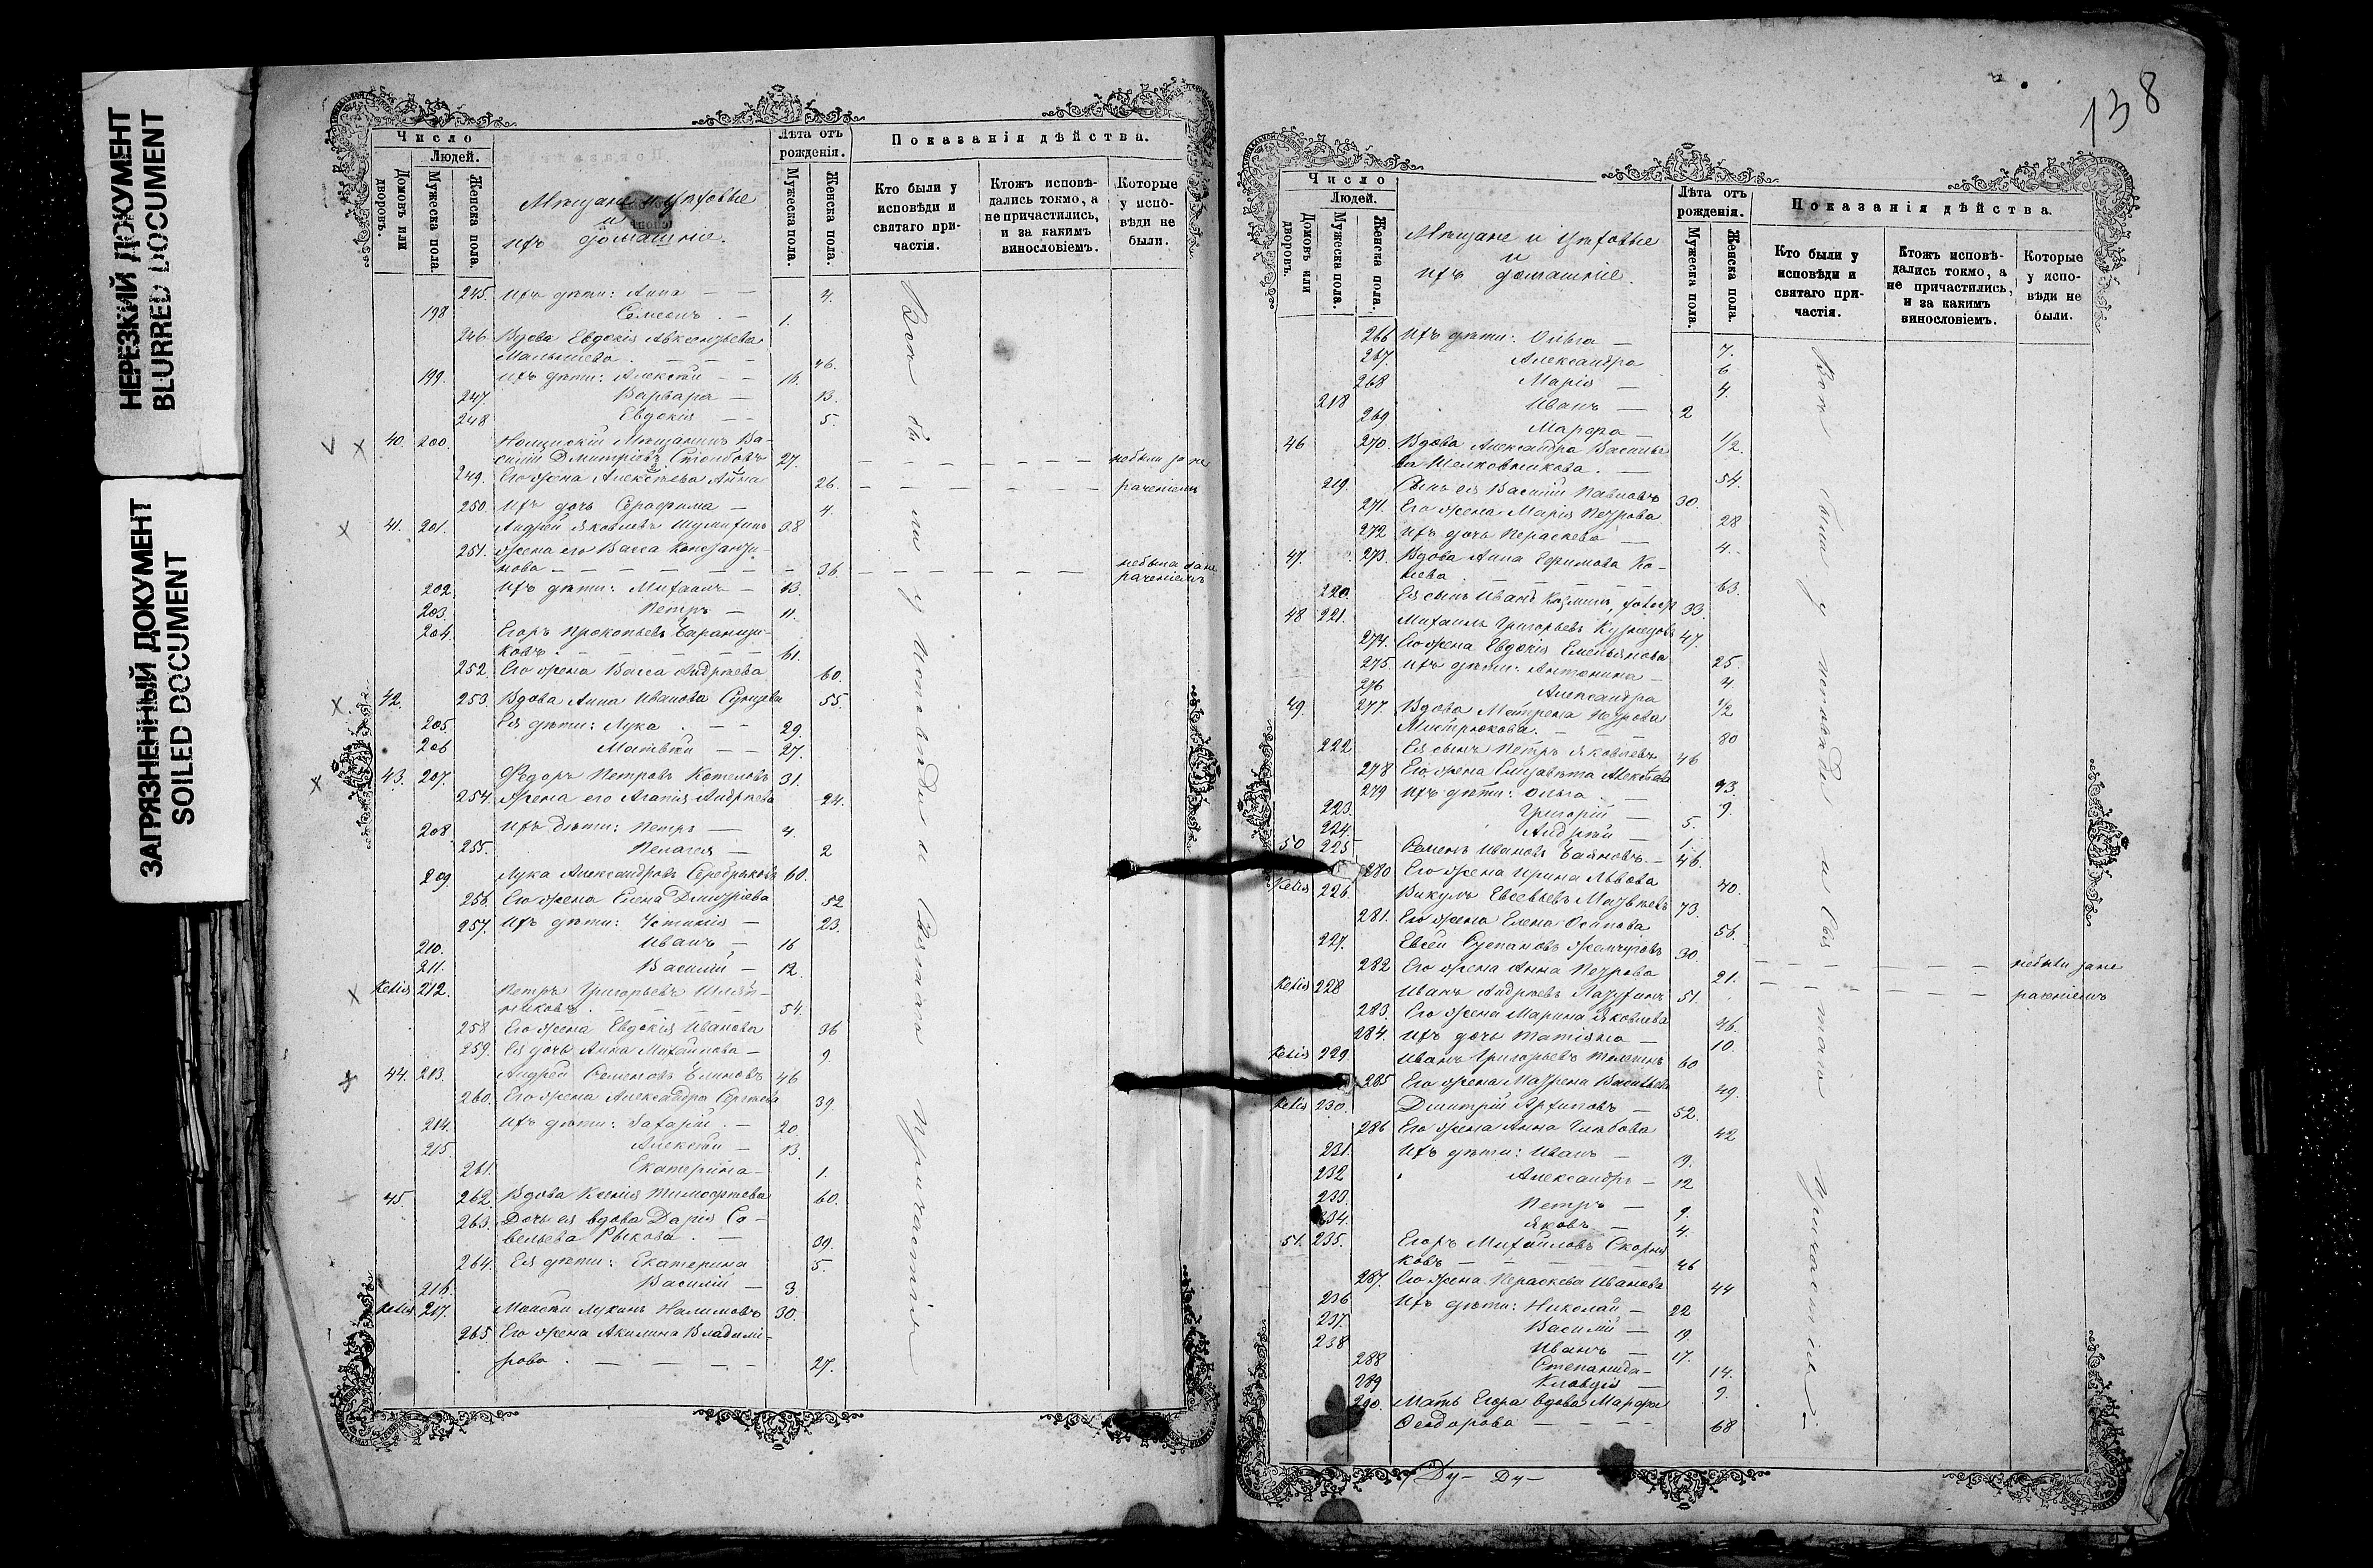 НЕРЕЗКИЙ ДОКУМЕНТ
BLURRED DOCUMENT
ЗАГРЯЗНЕННЫЙ ДОКУМЕНТ
SOILED DOCUMENT
Число
Людей.
Домовъ или дворовъ.
Мужеска пола.
Женска пола.
Мѣщане и Цѣховые
и
ихъ домашніе.
Лѣта отъ рожденія.
Мужеска пола.
Женска пола.
Показанія дѣйства.
Кто были у исповѣди и святаго причастія.
Ктожъ исповѣдались токмо, а не причастились, и за какимъ винословіемъ.
Которые у исповѣди не были.
245. Ихъ дѣти: Анна — — 4.
198 Семенъ . — 1.
246. Вдова Евдокія
. — — — 46.
199. Ихъ дѣти: Алексѣй — — 16.
247. Варвара — 13.
248 Евдокія — — 5.
40. 200. Мѣщанинъ Ва-
силій Дмитріевъ Столбовъ 27. небыли за не
249. Его жена Алексѣева Анна 26. раченіемъ
250. Ихъ дочь Серафима — 4.
41. 201. Андрей Яковлевъ 38
251. жена его Васса Константи-
нова — — — — — — 36. небыла за не
раченіемъ
202. Ихъ дѣти: Михаилъ — 13.
203. Петръ — 11.
204. Егоръ Прокопьевъ Баранщи-
ковъ . — — — — — 61.
252. Его жена Васса Андреева 60.
42. 253. Вдова Анна Иванова 55.
205. Ея дѣти: Лука . — — 29.
206 Матвѣй — — 27.
43. 207. Федоръ Петровъ Котеловъ 31.
254. Жена его Агапія Андреева 24.
208. Ихъ дѣти: Петръ — 4.
255. Пелагея — 2
209. Лука Александровъ Серебряковъ 60.
256. Его жена Елена Дмитріева 52
257. Ихъ дѣти: Устинія — 23.
210. Иванъ — 16
211. Василій — 12.
Келія 212. Петръ Григорьевъ Шляп-
никовъ . — — — — 54.
258. Его жена Евдокія Иванова 36
259. Ея дочь Анна Михайлова — 9
44. 213. Андрей Семеновъ Блиновъ 46
260. Его жена Александра Сергѣева 39.
214. Ихъ дѣти: Захарій . — 20
215. Алексѣй — 13.
261. Екатерина — 1.
45. 262. Вдова Ксенія Тимофеева 60.
263. Дочь ея вдова Дарія Са-
вельева Рыкова . — 39.
264. Ея дѣти: Екатерина 5.
216. Василій — 3.
Келія 217. Моисей Лукинъ Налимовъ 30.
265. Его жена Акилина Владимі-
рова . — — — — 27.
Вси были у исповѣди и Святаго Причастія
138
Число
Людей.
Домовъ или дворовъ.
Мужеска пола.
Женска пола.
Мѣщане и Цѣховые
и
ихъ домашніе.
Лѣта отъ рожденія.
Мужеска пола.
Женска пола.
Показанія дѣйства.
Кто были у исповѣди и святаго причастія.
Ктожъ исповѣдались токмо, а не причастились, и за какимъ винословіемъ.
Которые у исповѣди не были.
266 Ихъ дѣти: Ольга — 7.
267. Александра 6
268 Марія — 4.
218 Иванъ — 2
269 Марфа — 1/2.
46 270. Вдова Александра Василье
ва Шелковникова . — 54.
219. Сынъ ея Василій Павловъ 30.
271. Его жена Марія Петрова 28
272 Ихъ дочь Параскева — 4.
47. 273. Вдова Анна Ефимова Ко-
63.
220. Ея сынъ Иванъ Козминъ, холост 33.
48 221. Михаилъ Григорьевъ Кузнецовъ 47.
274. Его жена Евдокія Емельянова 25.
275. Ихъ дѣти: Антонина — 4.
276 Александра 1/2
49. 277. Вдова Матрена Петрова
Мистрюкова. — — — 80
222 Ея сынъ Петръ Яковлевъ 46
278 Его жена Елизавета Алексѣева 43.
279 Ихъ дѣти: Ольга . — 9.
223. Григорій — 5.
224. Андрей — 1.
50 225 Семенъ Ивановъ Баяновъ — 46.
280 Его жена Ирина Львова 40.
Келія 226. Викулъ Евсевьевъ Матвѣевъ 73.
281. Его жена Елена Осипова 56.
227. Евсей Степановъ Жемчуговъ 30. небыли за не
282 Его жена Анна Петрова 21. раченіемъ
Келія 228 Иванъ Андреевъ Лазухинъ 51.
283. Его жена Марина Яковлева 46.
284. Ихъ дочь Татіяна — 10.
Келія 229. Иванъ Григорьевъ 60
285 Его жена Матрена Васильева 49.
Келія 230. Дмитрій Архиповъ — 52.
286 Его жена Анна Глѣбова 42
231. Ихъ дѣти: Иванъ —
232 Александръ — 12
233. Петръ — 9.
234. Яковъ. — 4.
51. 235. Егоръ Михайловъ Скорня
ковъ — — — — — 46
287. Его жена Параскева Иванова 44
236 Ихъ дѣти: Николай — 22
237. Василій — 19.
238 Иванъ — 17.
288 Степанида — 14.
289 Клавдія — 9.
290. Мать Егора вдова Марфа
Феодорова — — — — 68
Вси были у исповѣди и Святаго Причастія
Ду- Ду-